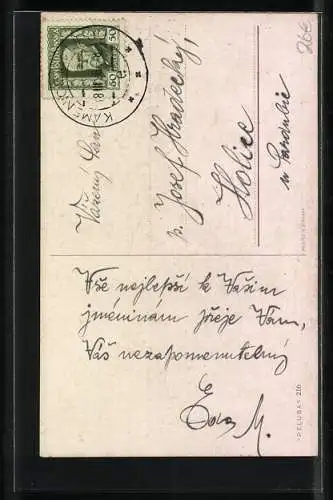 26€
50 50
KAMENICE
Vážený Pan
p. Josef Hradecký,
Holice
u Pardubic
Vše nejlepší k Vašim
jmeninám přeje Vám,
Váš nezapomenutelný
M.
"PELUBA" 216